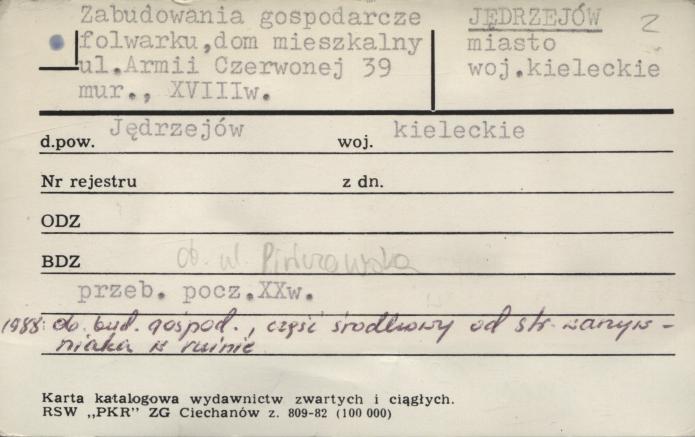 Zabudowania gospodarcze
folwarku, dom mieszkalny
ul. Armii Czerwonej 39
mur., XVIIIw.
JĘDRZEJÓW 2
miasto
woj. kieleckie
d.pow. Jędrzejów woj. kieleckie
Nr rejestru z dn.
ODZ
BDZ ob. ul. Pińczowska
przeb. pocz. XXw.
1988: ob. bud. gospod., część środkowy od str. warzyw-
niaka w ruinie
Karta katalogowa wydawnictw zwartych i ciągłych.
RSW „PKR" ZG Ciechanów z. 809-82 (100 000)